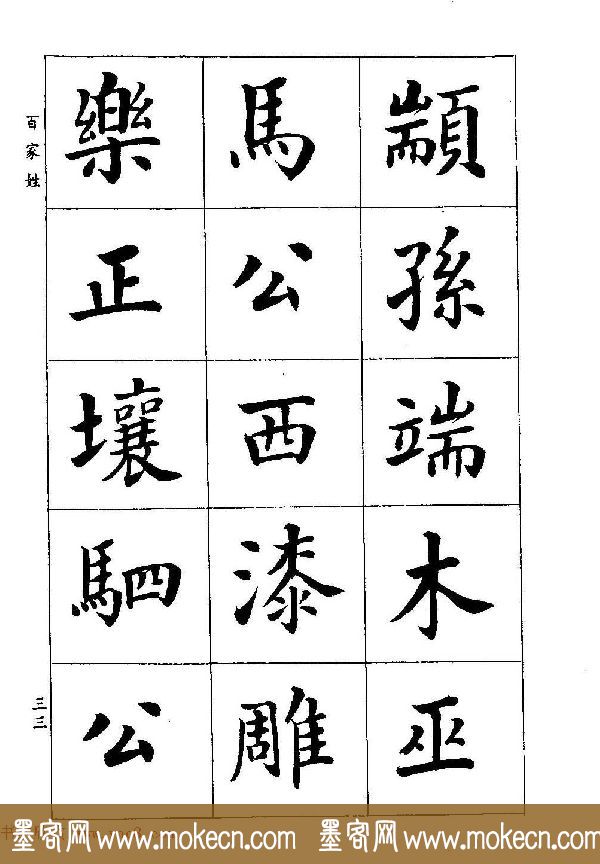 顓孫端木巫
馬公西漆雕
樂正壤駟公
百家姓
三三
墨客网 www.mokecn.com 墨客网 www.mokecn.com